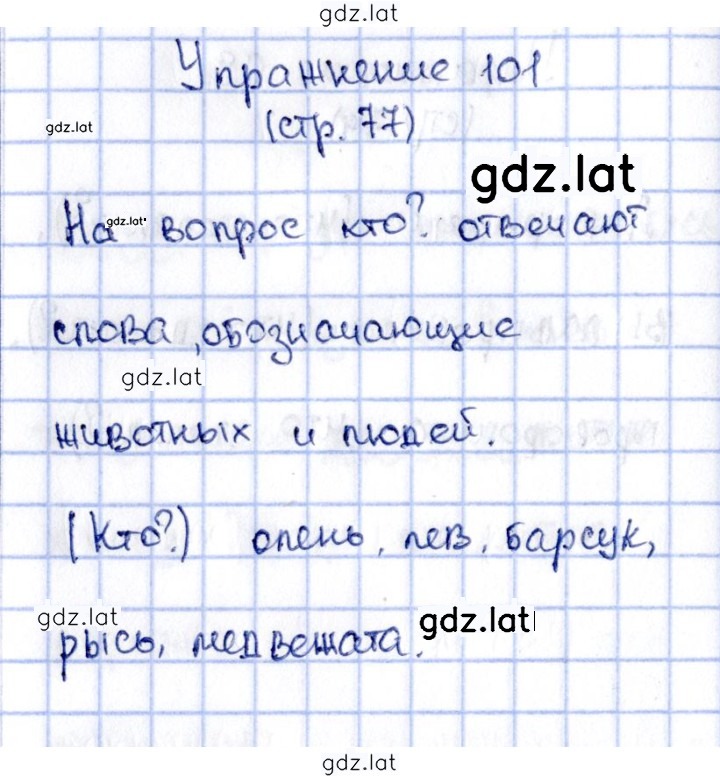 gdz.lat
Упражнение 101
gdz.lat
(стр. 77)
gdz.lat
На gdz.lat вопрос кто? отвечают
слова ,обозначающие
gdz.lat
животных и людей.
(Кто?) олень, лев, барсук,
gdz.lat gdz.lat
рысь, медвежата.
gdz.lat